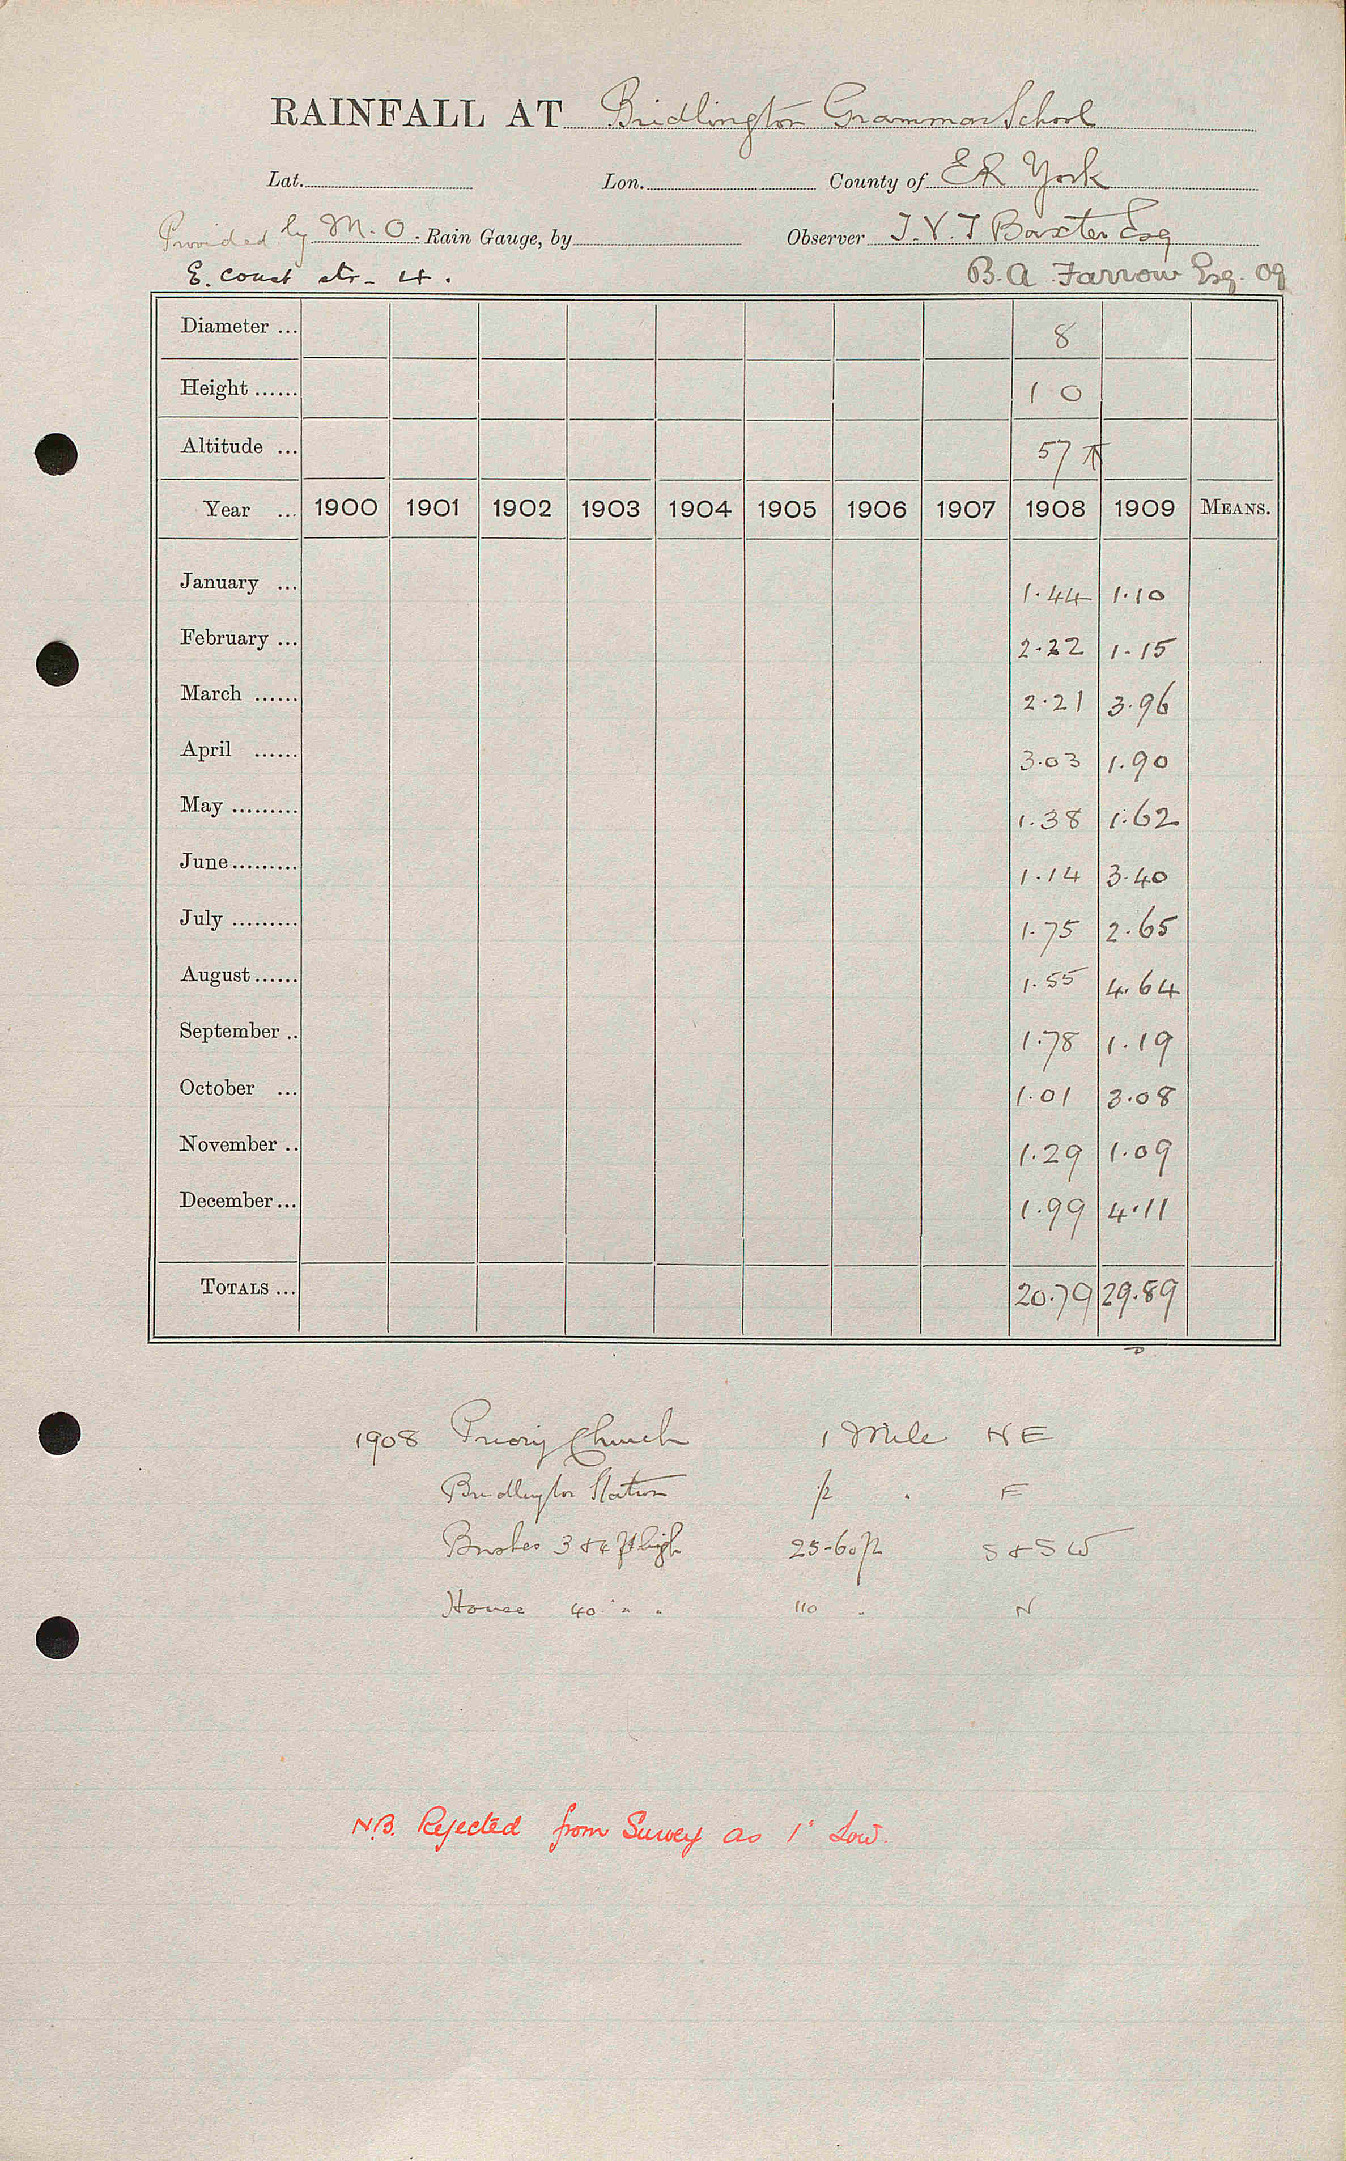 RAINFALL AT Bridlington Grammar School
Lat. Lon. County of ER York
Provided by M.O. Rain Gauge, by Observer J.V.T Baxter Esq
E. coast str- 4. B.A. Farrow Esq. 09
Diameter ... 8
Height ...... 1 0
Altitude ... 57
Year ... 1900 1901 1902 1903 1904 1905 1906 1907 1908 1909 MEANS.
January ... 1.44 1.10
February ... 2.22 1.15
March ...... 2.21 3.96
April ...... 3.03 1.90
May ......... 1.38 1.62
June ......... 1.14 3.40
July ......... 1.75 2.65
August ...... 1.55 4.64
September .. 1.78 1.19
October ... 1.01 3.08
November .. 1.29 1.09
December ... 1.99 4.11
TOTALS ... 20.79 29.89
1908 Priory Church 1 Mile NE
Bridlington Station E
Bushes 3 & 4 ft high 25-60 ft S & SW
House 40 " " 110 " N
N.B. Rejected from Survey as 1" Low.